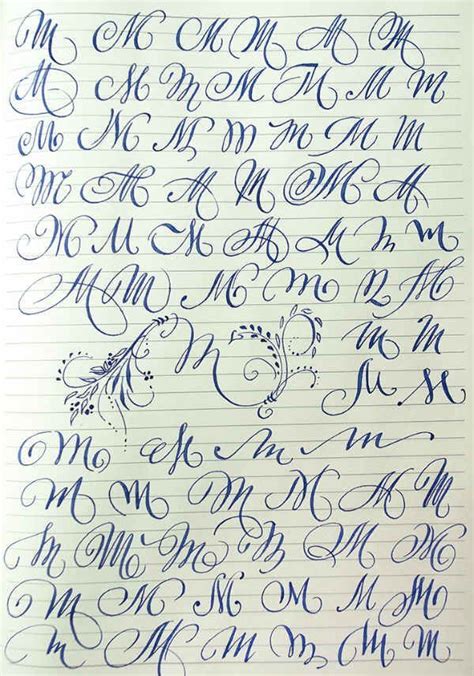 M M M M M M
M M M M M M M
M M M M M M M
M M M M M M
M M M M M M M
M M M M M M
M M M
M M
M M M M
M M M M M M
M M M M M M M
M M M M M M M
M M M M M M